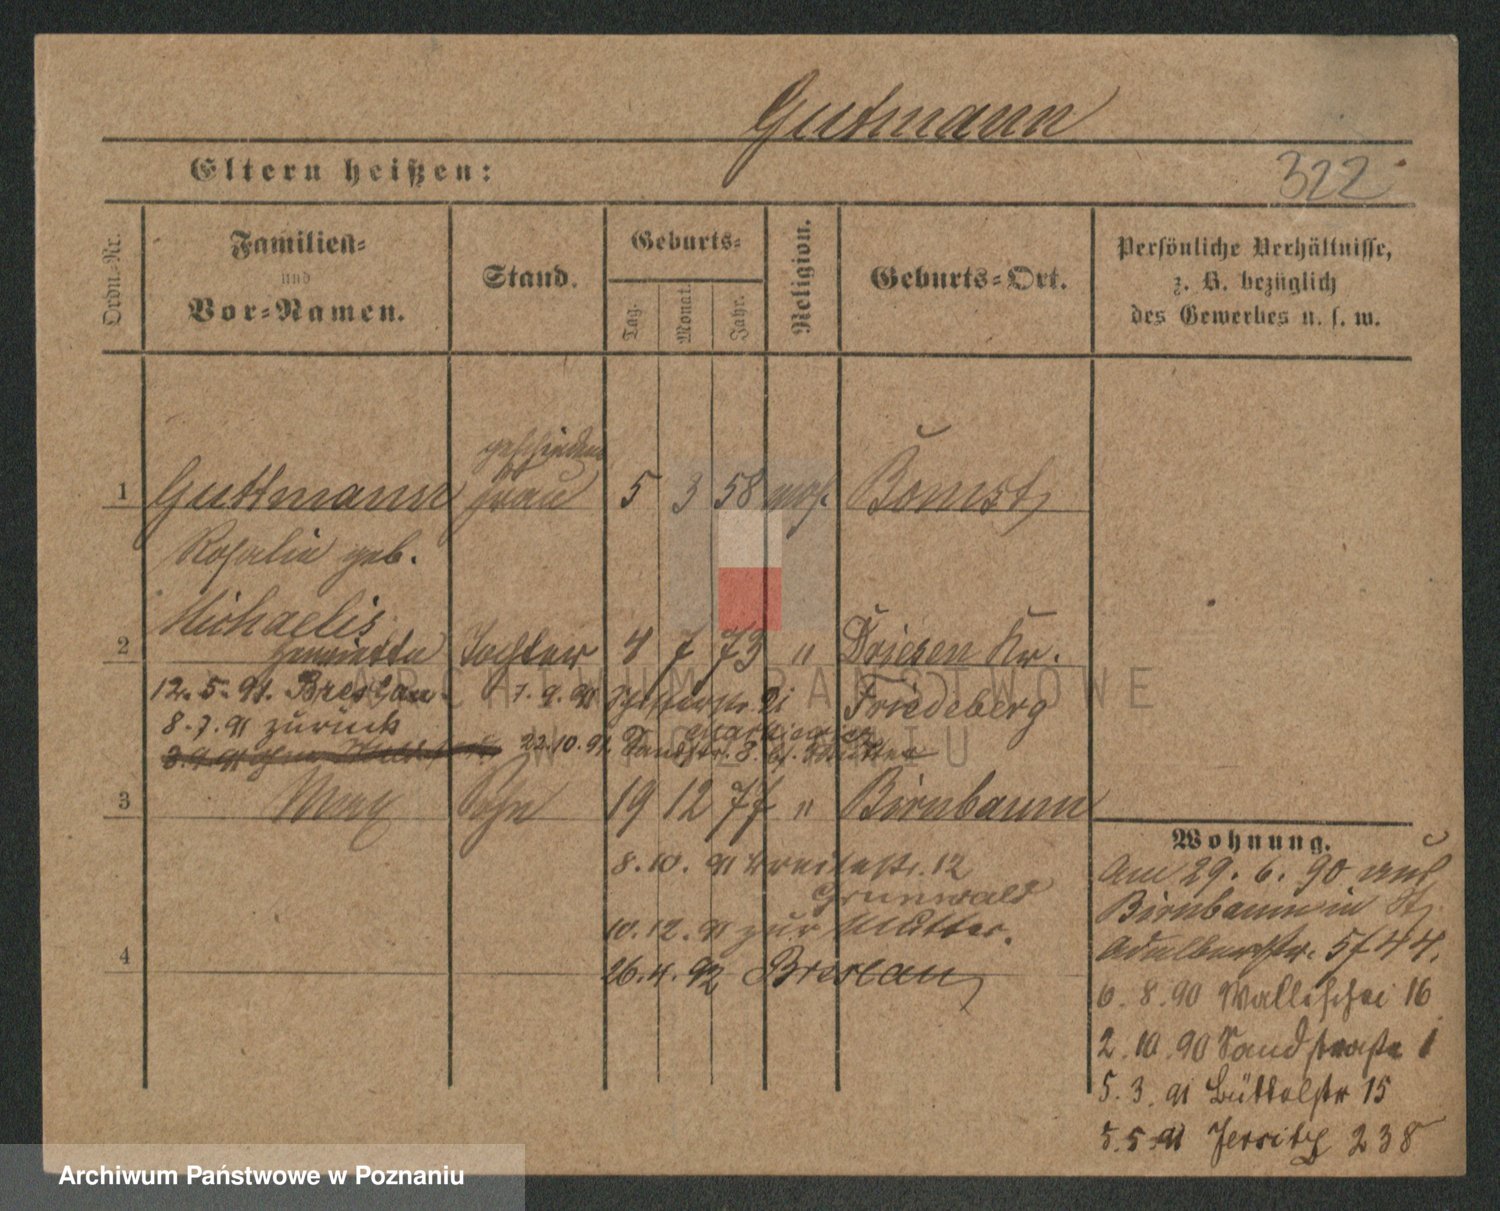 Gutmann
Eltern heißen:
322
Ordn.-Nr.
Familien-
und
Vor-Namen.
Stand.
Geburts-
Tag.
Monat.
Jahr.
Religion.
Geburts-Ort.
Persönliche Verhältnisse,
z. B. bezüglich
des Gewerbes u. s. w.
geschiedene
1 Guttmann Frau 5 3 58 mos. Bomst
Rosalie geb.
Michaelis
2 Henriette Tochter 4 7 73 " Driesen Kr.
Friedeberg
12.5.91. Breslau
7.9.91
8.7.91 zurück
22.10.91. Sandstr. 8.
3 Max Sohn 19 12 77 " Birnbaum
8.10.91 Breitestr. 12
Grunwald
10.12.91 zur Mutter.
4
26.4.92 Breslau
Wohnung.
Am 29.6.90 aus
Birnbaum in St.
Adalbertstr. 5 f 44.
6.8.90 Wallischei 16
2.10.90 Sandstraße 1
5.3.91 Büttelstr 15
5.5.91 Jersitz 238
ARCHIWUM PAŃSTWOWE
W POZNANIU
Archiwum Państwowe w Poznaniu